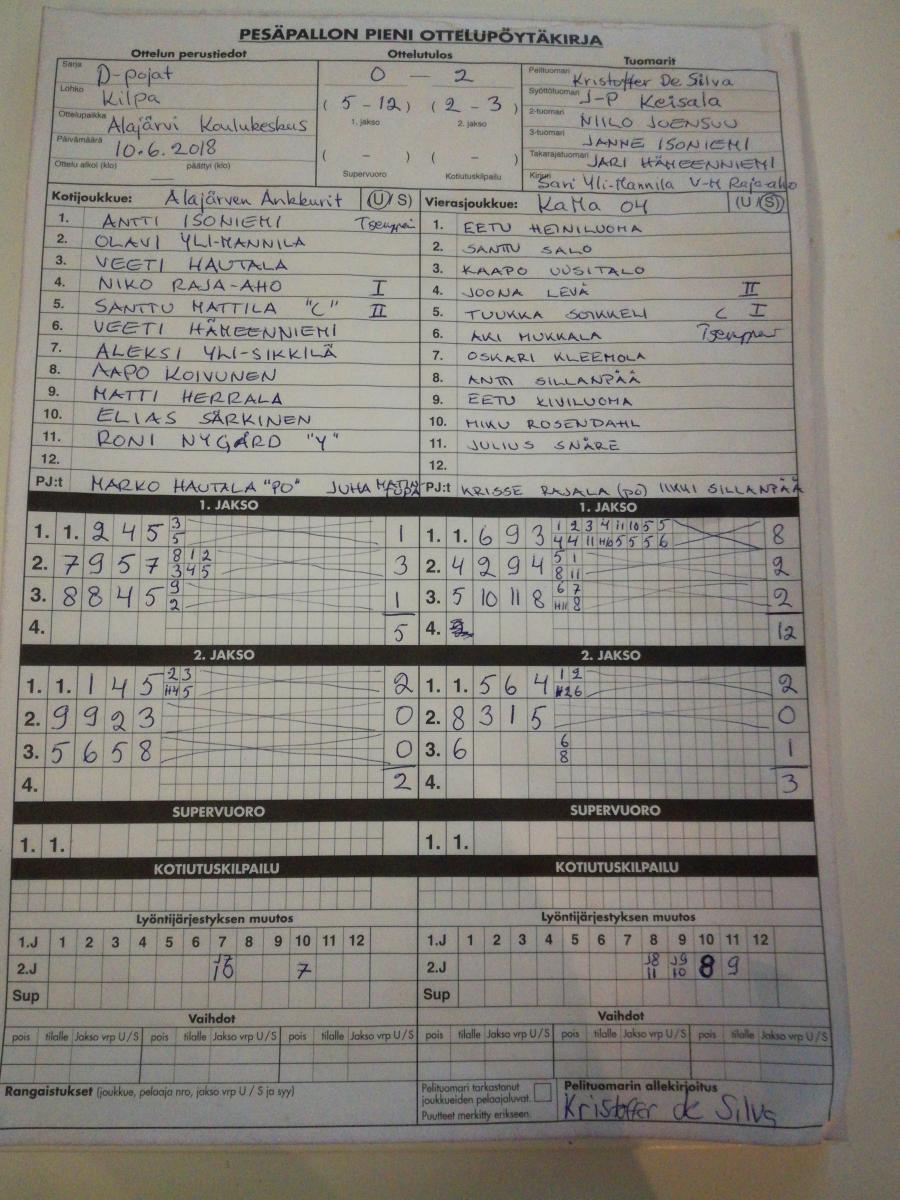 PESÄPALLON PIENI OTTELUPÖYTÄKIRJA
Ottelun perustiedot
Sarja D-pojat
Lohko Kilpa
Ottelupaikka Alajärvi Koulukeskus
Päivämäärä 10.6.2018
Ottelu alkoi (klo) — päättyi (klo)
Ottelutulos
0 — 2
( 5 - 12 ) ( 2 - 3 )
1. jakso 2. jakso
( - ) ( - )
Supervuoro Kotiutuskilpailu
Tuomarit
Pelituomari Kristoffer De Silva
Syöttötuomari J-P Keisala
2-tuomari NIILO JOENSUU
3-tuomari JANNE ISONIEMI
Takarajatuomari JARI HÄMEENNIEMI
Kirjuri Sari Yli-Mannila V-M Raja-aho
Kotijoukkue: Alajärven Ankkurit (U/S)
1. ANTTI ISONIEMI Tsemppari
2. OLAVI YLI-MANNILA
3. VEETI HAUTALA
4. NIKO RAJA-AHO I
5. SANTTU MATTILA "C" II
6. VEETI HÄMEENNIEMI
7. ALEKSI YLI-SIKKILÄ
8. AAPO KOIVUNEN
9. MATTI HERRALA
10. ELIAS SÄRKINEN
11. RONI NYGÅRD "Y"
12.
PJ:t MARKO HAUTALA "PO" JUHA MATIN TUPA
Vierasjoukkue: KaMa 04 (U/S)
1. EETU HEINILUOMA
2. SANTTU SALO
3. KAAPO UUSITALO
4. JOONA LEVÄ II
5. TUUKKA SOIKKELI C I
6. AKI MUKKALA Tsemppari
7. OSKARI KLEEMOLA
8. ANTTI SILLANPÄÄ
9. EETU KIVILUOMA
10. MIKU ROSENDAHL
11. JULIUS SNÅRE
12.
PJ:t KRISSE RAJALA (PO) IIKKI SILLANPÄÄ
1. JAKSO
1. 1. 2 4 5 3 1
5
2. 7 9 5 7 8 1 2 3
3 4 5
3. 8 8 4 5 9 1
2
4. 5
1. JAKSO
1. 1. 6 9 3 1 2 3 4 11 10 5 5 8
4 4 11 H6 5 5 5 6
2. 4 2 9 4 5 1 2
8 11
3. 5 10 11 8 6 7 2
H11 8
4. 12
2. JAKSO
1. 1. 1 4 5 2 3 2
H4 5
2. 9 9 2 3 0
3. 5 6 5 8 0
4. 2
2. JAKSO
1. 1. 5 6 4 1 2 2
H2 6
2. 8 3 1 5 0
3. 6 6 1
8
4. 3
SUPERVUORO
1. 1.
SUPERVUORO
1. 1.
KOTIUTUSKILPAILU
KOTIUTUSKILPAILU
Lyöntijärjestyksen muutos
1.J 1 2 3 4 5 6 7 8 9 10 11 12
2.J J7 10 7
Sup
Lyöntijärjestyksen muutos
1.J 1 2 3 4 5 6 7 8 9 10 11 12
2.J J8 11 J9 10 8 9
Sup
Vaihdot
pois tilalle Jakso vrp U/S pois tilalle Jakso vrp U/S pois tilalle Jakso vrp U/S
Vaihdot
pois tilalle Jakso vrp U/S pois tilalle Jakso vrp U/S pois tilalle Jakso vrp U/S
Rangaistukset (joukkue, pelaaja nro, jakso vrp U / S ja syy)
Pelituomari tarkastanut
joukkueiden pelaajaluvat.
Puutteet merkitty erikseen.
Pelituomarin allekirjoitus
Kristoffer de Silva